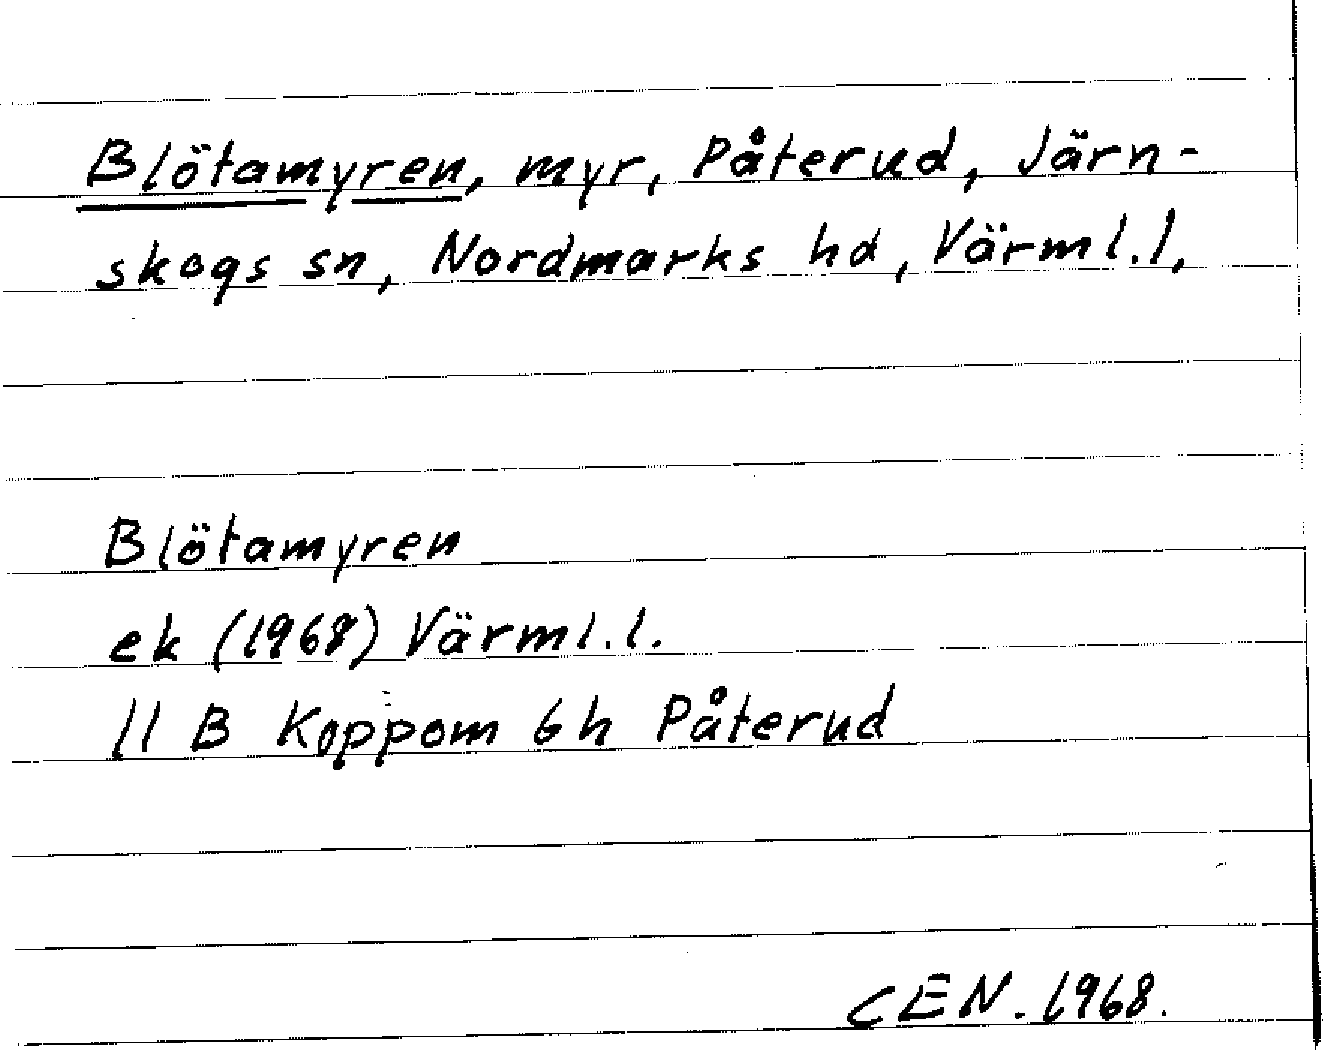 Blötamyren, myr, Påterud, Järn-
skogs sn, Nordmarks hd, Värml.l.
Blötamyren
ek (1968) Värml.l.
11 B Koppom 6h Påterud
CEN. 1968.